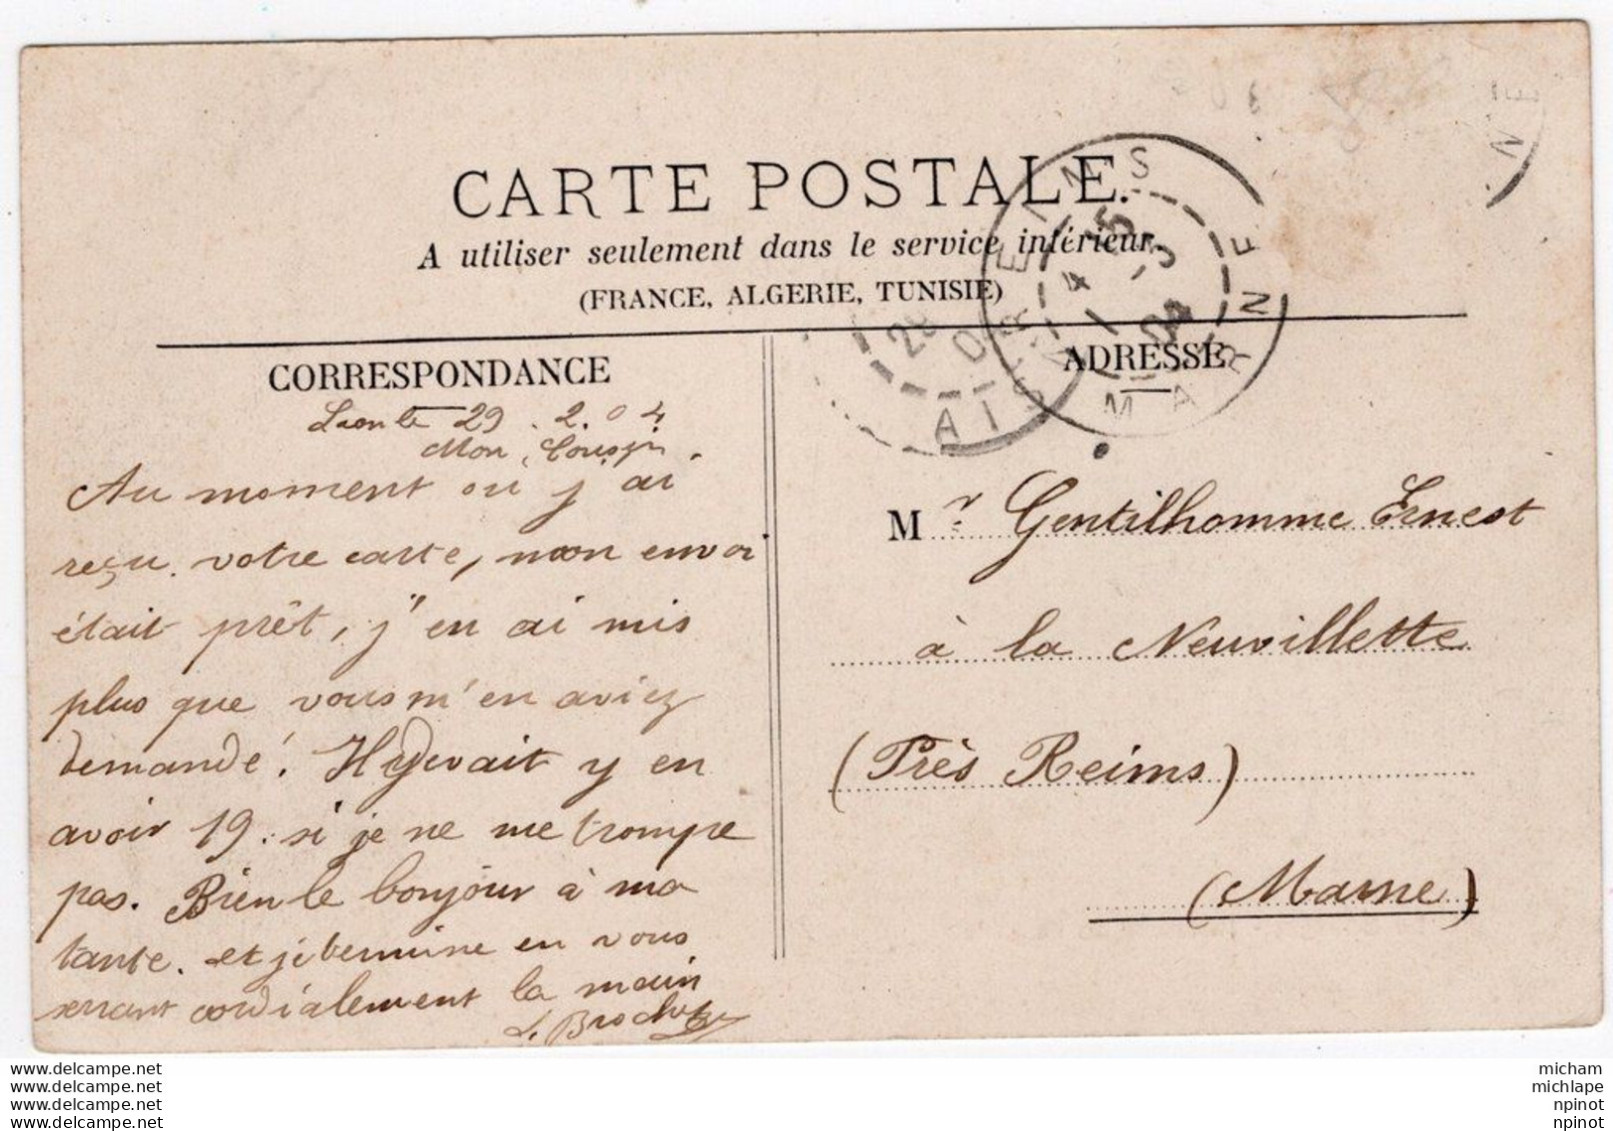 CARTE POSTALE.
A utiliser seulement dans le service intérieur.
(FRANCE, ALGERIE, TUNISIE)
REIMS
4 15
1 - 3
04
MARNE
AISNE
NE
CORRESPONDANCE
le 29. 2. 04
Mon Cousin.
Au moment où j'ai
reçu votre carte, mon envoi
était prêt, j'en ai mis
plus que vous m'en aviez
demandé! Il devait y en
avoir 19. si je ne me trompe
pas. Bien le bonjour à ma
tante. et je termine en vous
serrant cordialement la main
ADRESSE
Mr. Gentilhomme Ernest
à la Neuvillette
(Près Reims)
(Marne)
www.delcampe.net
www.delcampe.net
www.delcampe.net
www.delcampe.net
micham
michlape
npinot
npinot